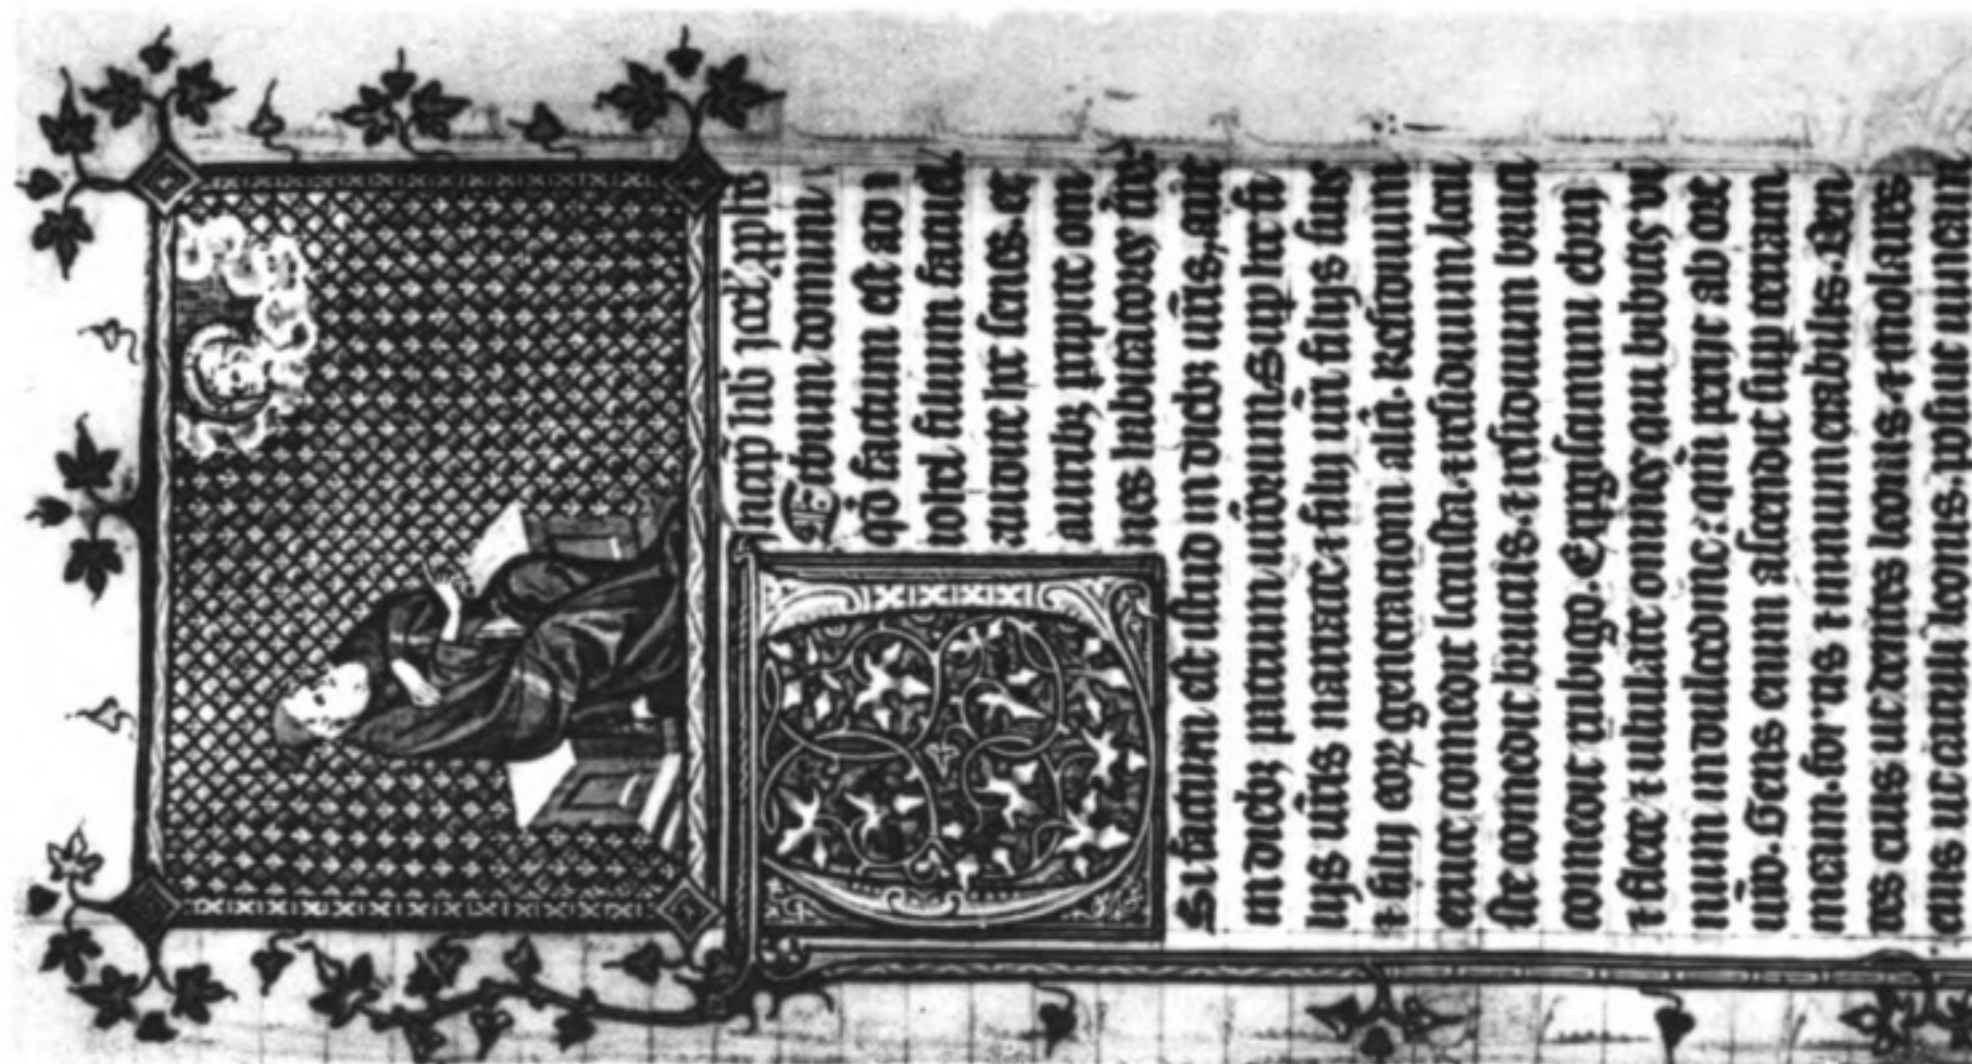 Incip lib joel
Erbum domini
qd̄ factum est ad
iohel filium fatuel
audite hec senes. et
auribꝫ pcipite om
nes habitatores tr̄e
Si factum est istud in diebꝫ ur̄is, aut
in diebꝫ patrum ur̄orum. Sup hec fi
lijs ur̄is narrate. ⁊ filij ur̄i filijs suis
⁊ filij eoꝝ generationi alt̄i. Residuum
eruce comedit locusta. ⁊ residuum locu
ste comedit brucus. ⁊ residuum bruci
comedit rubigo. Expgiscimini ebrij
⁊ flete ⁊ ululate omnes qui bibitis vi
num in dulcedine: qm̄ perijt ab ore
ur̄o. Gens enim ascendit sup terram
meam. fortis ⁊ innumerabilis. Den
tes eius ut dentes leonis. ⁊ molares
eius ut catuli leonis. posuit uineam